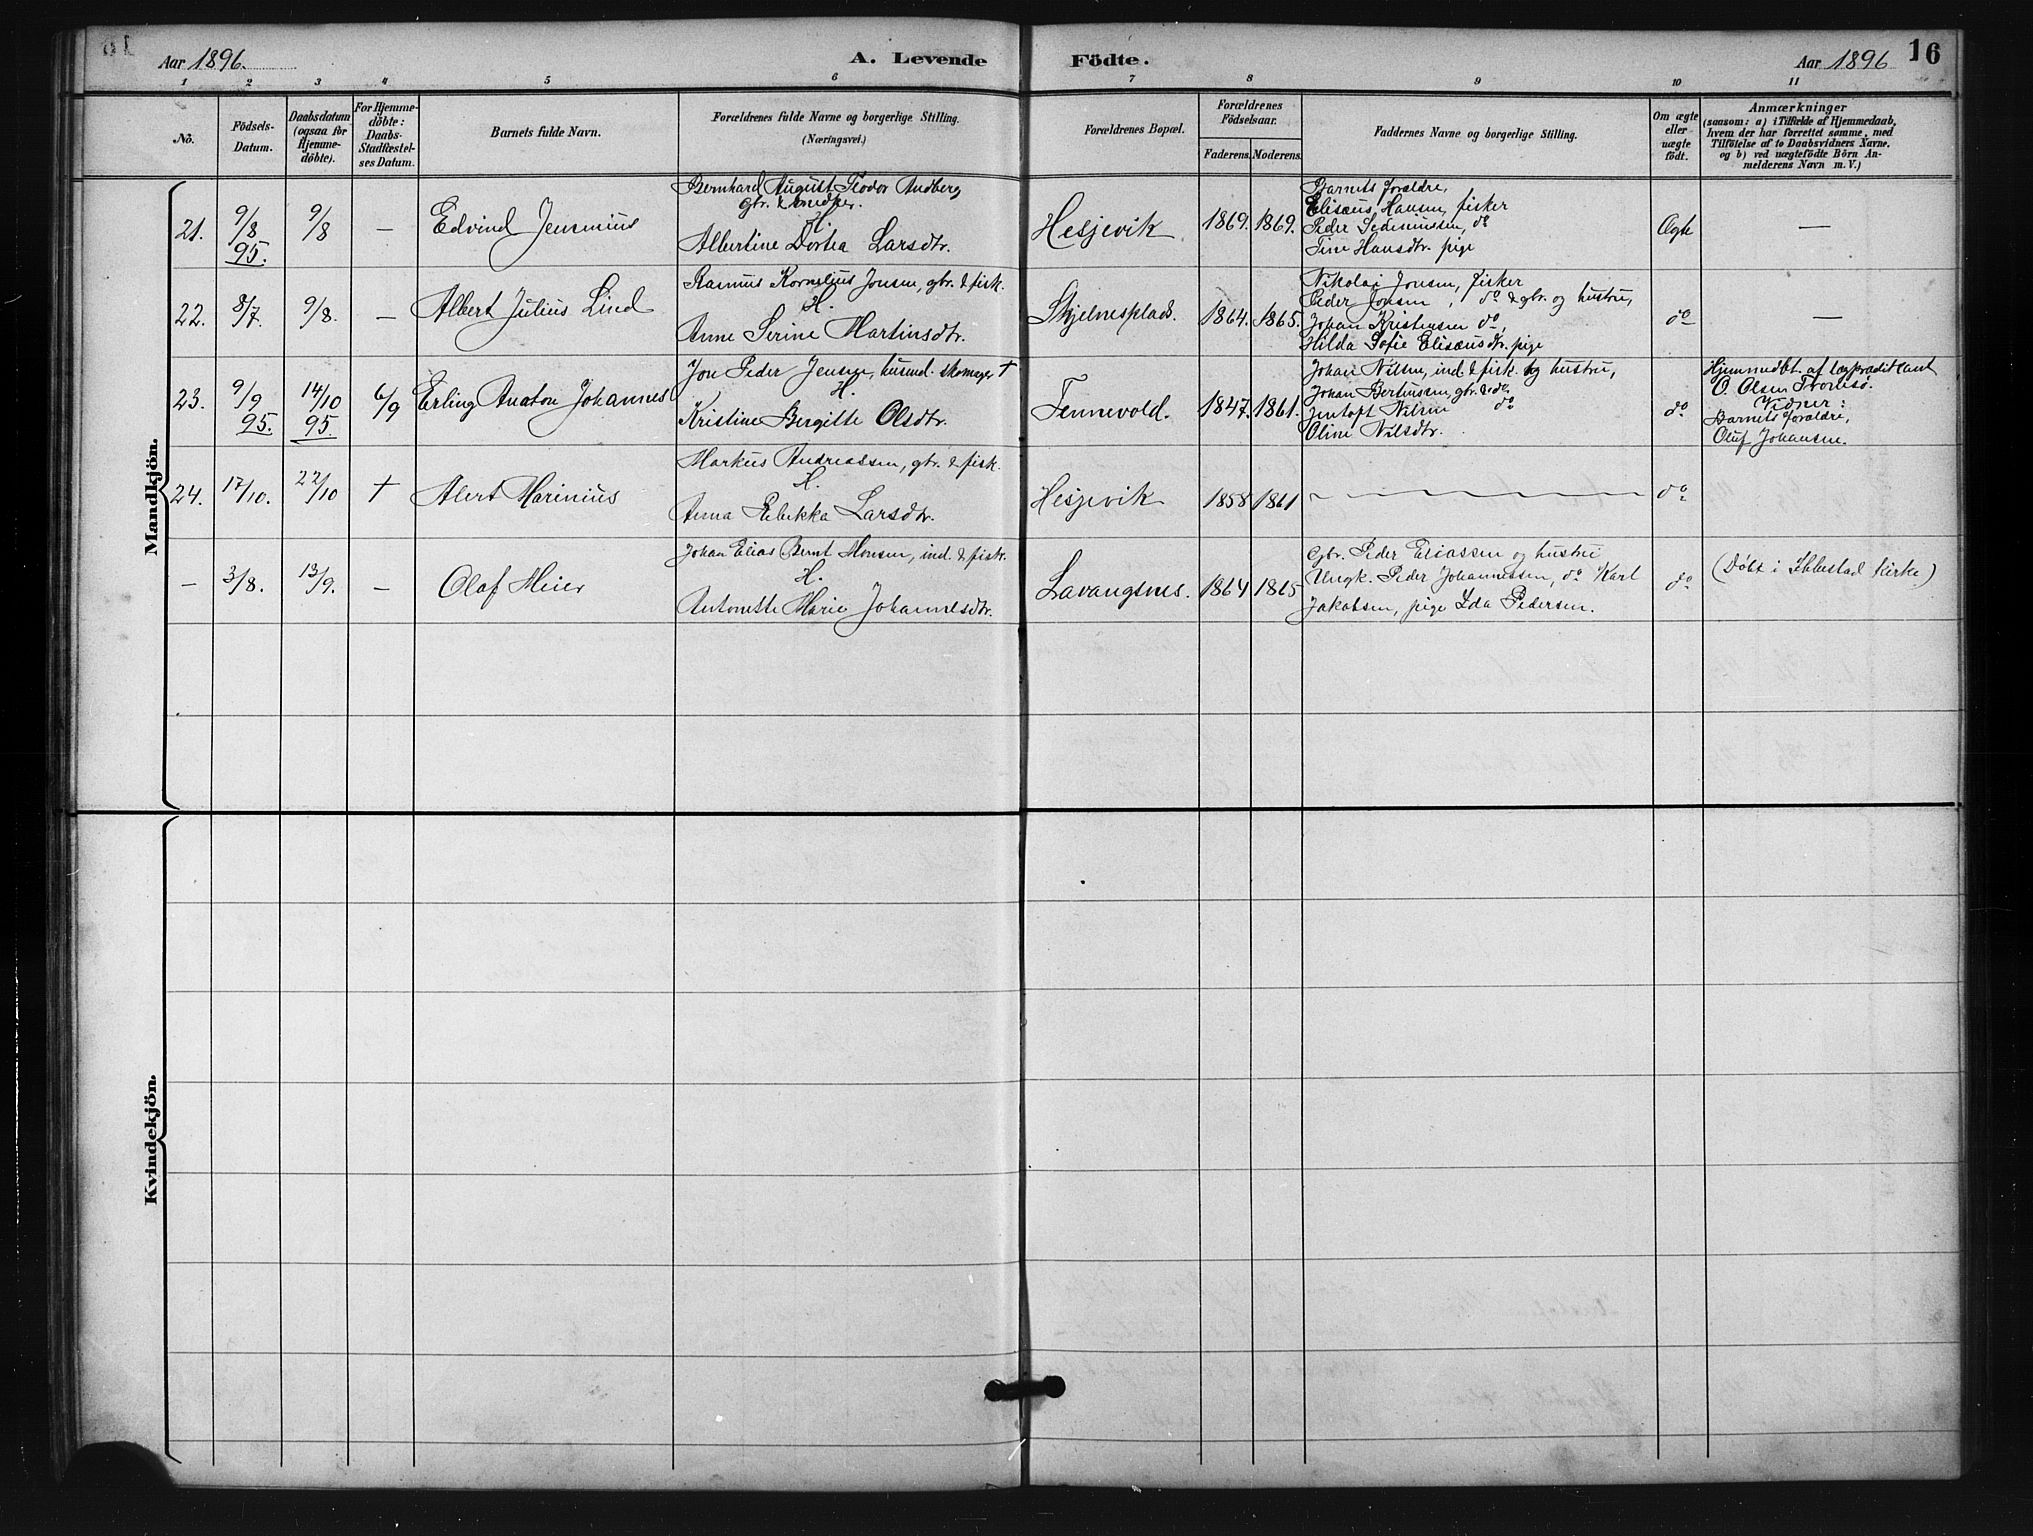 Aar 1896.
A. Levende Födte.
Aar 1896
16
1 2 3 4 5 6 7 8 9 10 11
No.
Födsels-
Datum.
Daabsdatum
(ogsaa for
Hjemme-
döbte).
For Hjemme-
döbte:
Daabs-
Stadfæstel-
ses Datum.
Barnets fulde Navn.
Forældrenes fulde Navne og borgerlige Stilling.
(Næringsvei.)
Forældrenes Bopæl.
Forældrenes
Födselsaar.
Faderens. Moderens.
Faddernes Navne og borgerlige Stilling.
Om ægte
eller
uægte
födt.
Anmærkninger
(saasom: a) i Tilfælde af Hjemmedaab,
hvem der har forrettet samme, med
Tilföielse af to Daabsvidners Navne.
og b) ved uægtefödte Börn An-
melderens Navn m. V.)
Mandkjön.
21.
9/8
95.
9/8
—
Edvind Jensenius
Bernhard August Teodor Andberg
gbr. & snedker.
H.
Albertine Dortea Larsdtr.
Hesjevik
1869. 1869.
Barnets foraldre,
Elisæus Hansen, fisker
Peder do
Tine Hansdtr. pige
Ægte
—
22.
8/7.
9/8.
—
Albert Julius Lind
Rasmus Kornelius Jonsen, gbr. & fisk.
H.
Anne Serine Martinsdtr.
Skjelnesplads.
1864. 1865.
Nikolai Jonsen, fisker
Peder Jonsen, do & gbr. og hustru,
Johan Kristensen do,
Hilda Sofie Elisæusdtr. pige
do
—
23.
9/9
95.
14/10
95
6/9
Erling Anaton Johannes
Jon Peder Jensen, husmd. skomager †
H.
Kristine Bergitte Olsdtr.
Tennevold.
1847. 1861.
Johan Nilsen, ind. & fisk. og hustru,
Johan Bertinsen, gbr. & do
Jentoft Nilsen do
Oline Nilsdtr.
do
Hjemmedbt. af
O. Olsen
Vidner:
Barnets foraldre,
Oluf Johansen.
24.
17/10.
22/10
†
Alert Marinius
Markus Andreassen, gbr. & fisk.
H.
Anna Rebekka Larsdtr.
Hesjevik
1858 1861
do
—
3/8.
13/9.
—
Olaf Meier
Johan Elias Bernt Monsen, ind. & fisk.
H.
Antonette Marie Johannesdtr.
Lavangsnes.
1864 1865
Gbr. Peder Eliassen og hustru
Ungk. Peder Johannessen, do Karl
Jakobsen, pige Ida Pedersen.
do
(Døbt i Ibbestad kirke)
Kvindekjön.